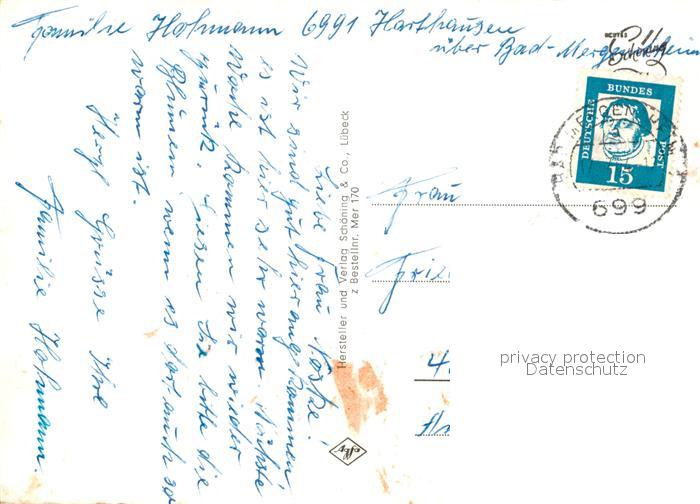 Familie Hofmann 6991 Harthausen
über Bad-Mergentheim
Liebe Frau
Wir sind gut hier angekommen,
es ist hier sehr warm. Nächste
Woche kommen wir wieder
zurück. Giesen Sie bitte die
Blumen wenn es dort auch so
warm ist.
Herzl. Grüsse Ihre
Familie Hofmann.
Hersteller und Verlag Schöning & Co., Lübeck
z Bestellnr. Mer 170
Agfa
Frau
DEUTSCHE BUNDESPOST
15
699
privacy protection
Datenschutz